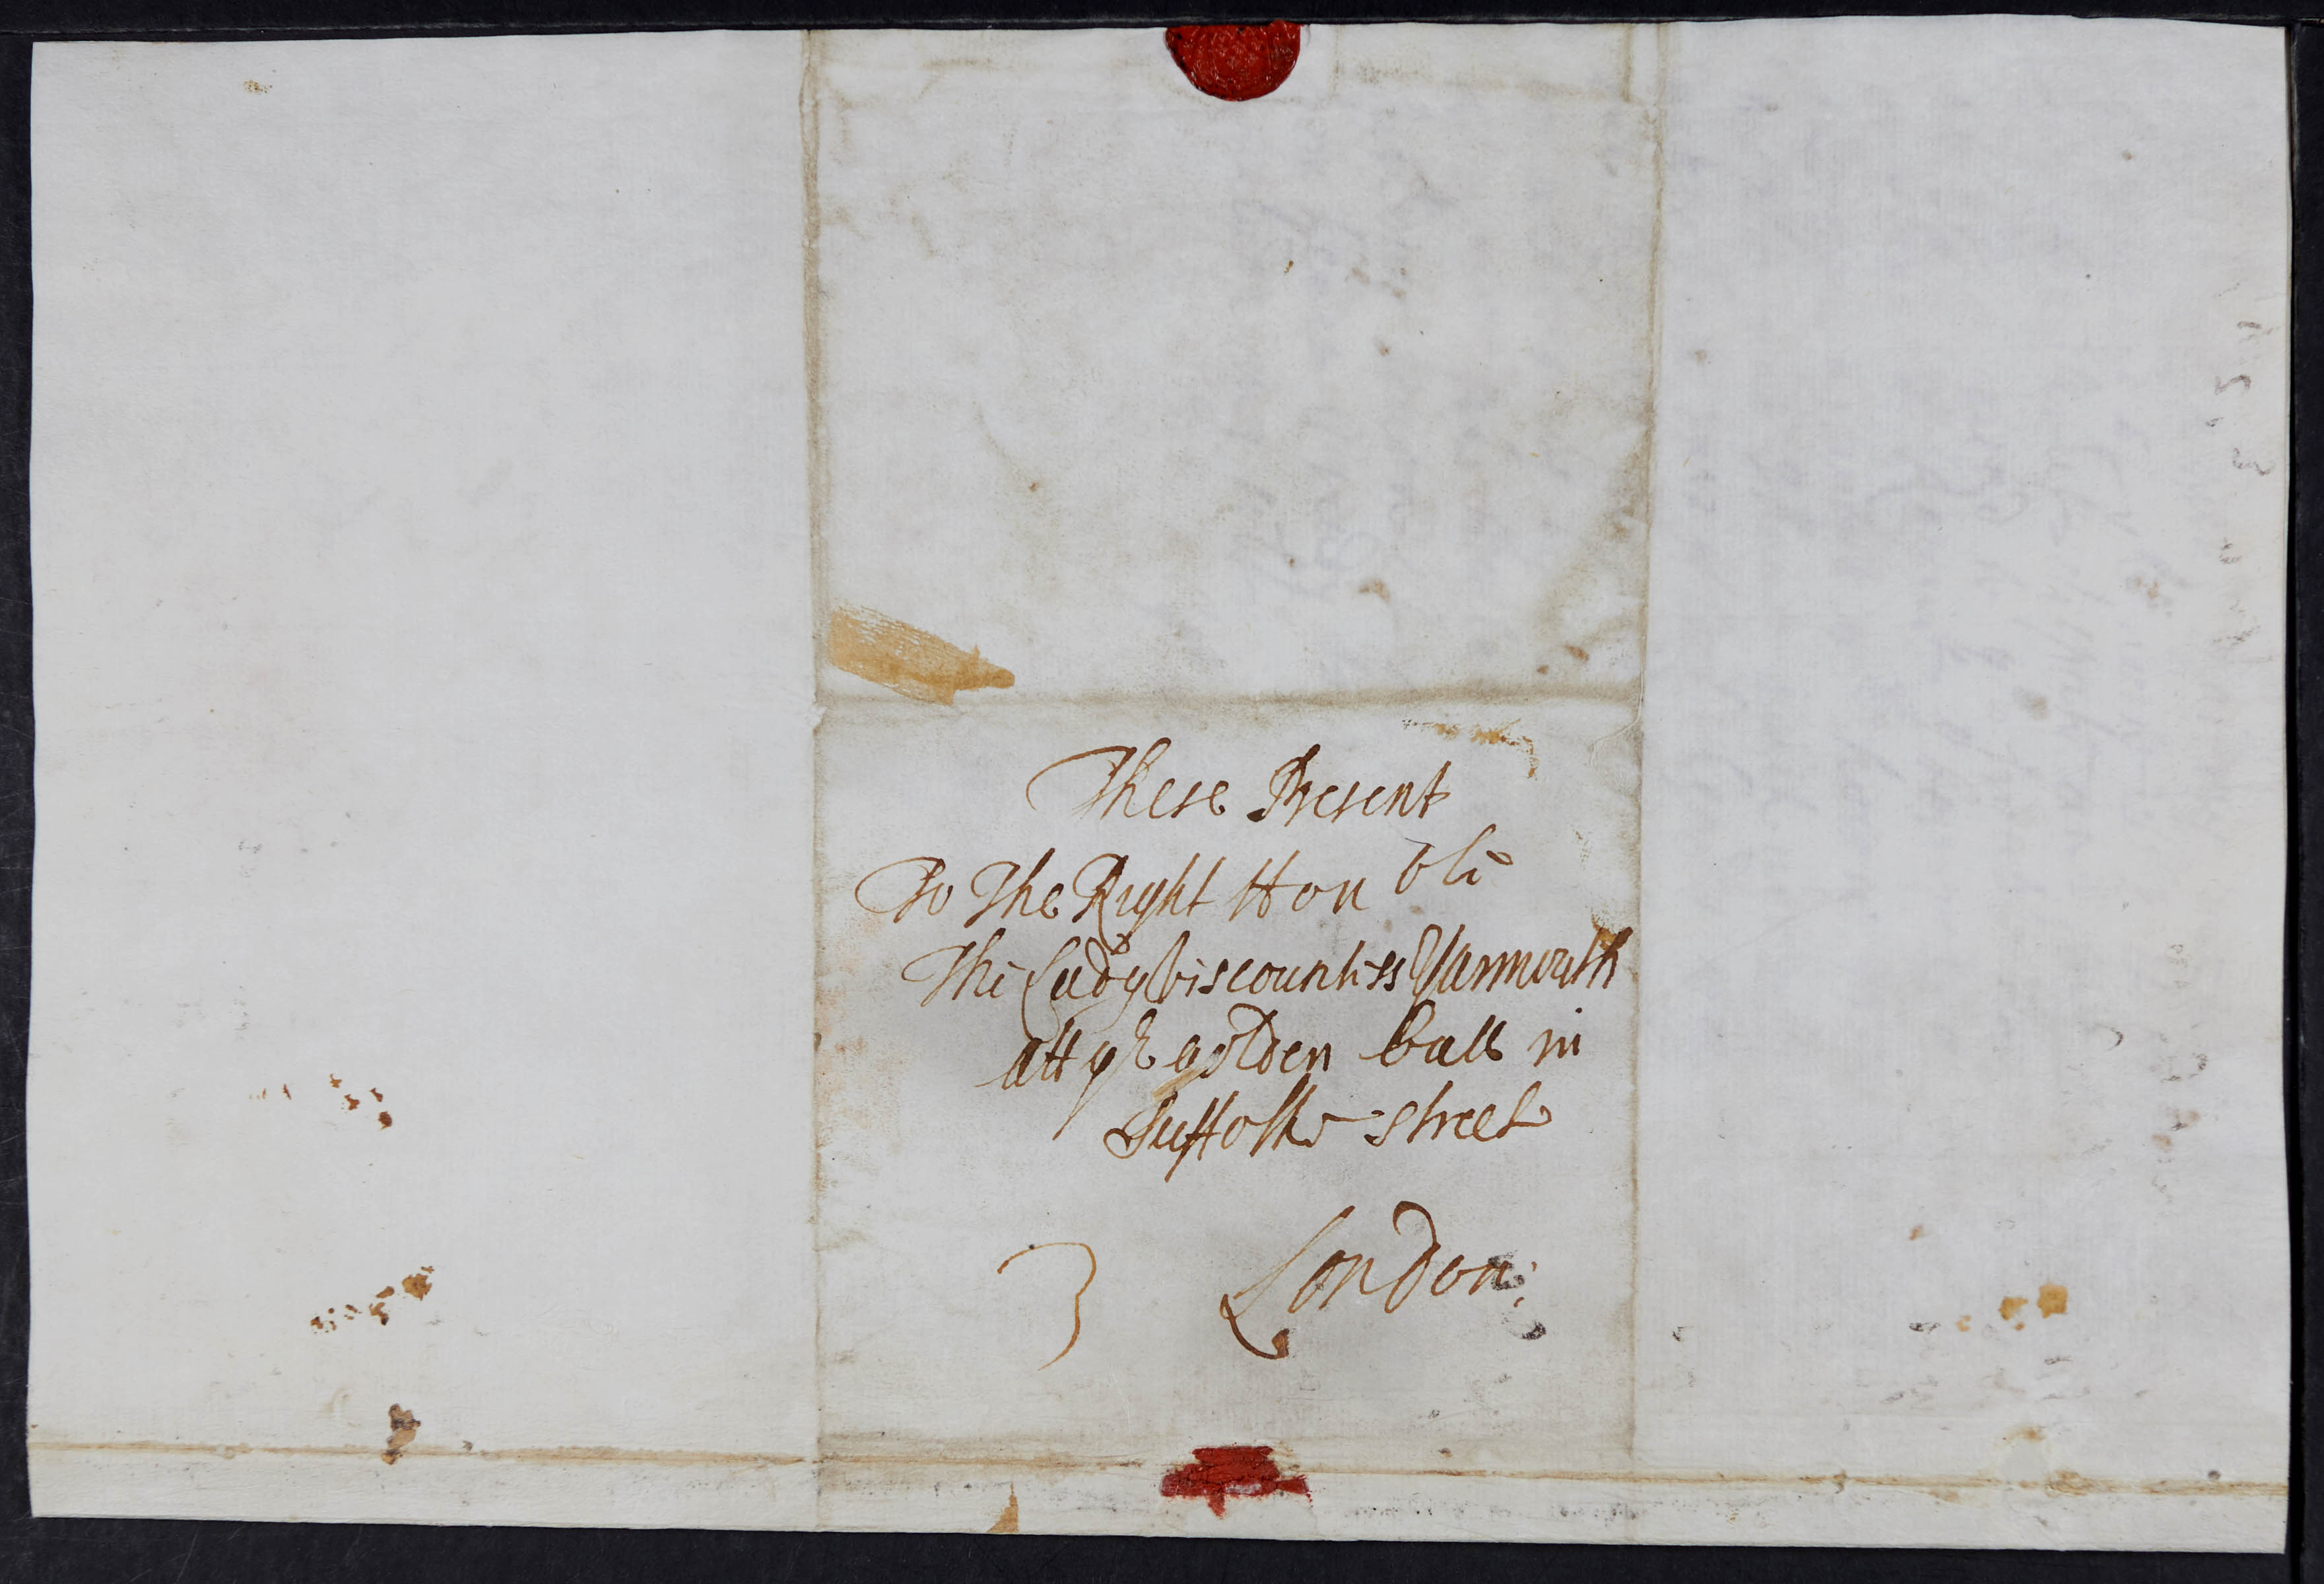 These Present
To The Right Hon ble
The Lady Viscountess Yarmouth
att ye golden ball in
Suffolke street
3 London;